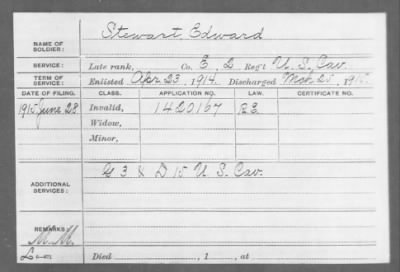 Stewart, Edward
NAME OF SOLDIER:
SERVICE: Late rank, Co. E, 2, Reg't U.S. Cav.
TERM OF SERVICE: Enlisted Apr. 23, 1914. Discharged Mch. 25, 191
DATE OF FILING. CLASS. APPLICATION NO. LAW. CERTIFICATE NO.
1915 June 28 Invalid, 1420167
Widow,
Minor,
ADDITIONAL SERVICES: G 3 & D 15 U.S. Cav.
REMARKS:
Died , 1 , at